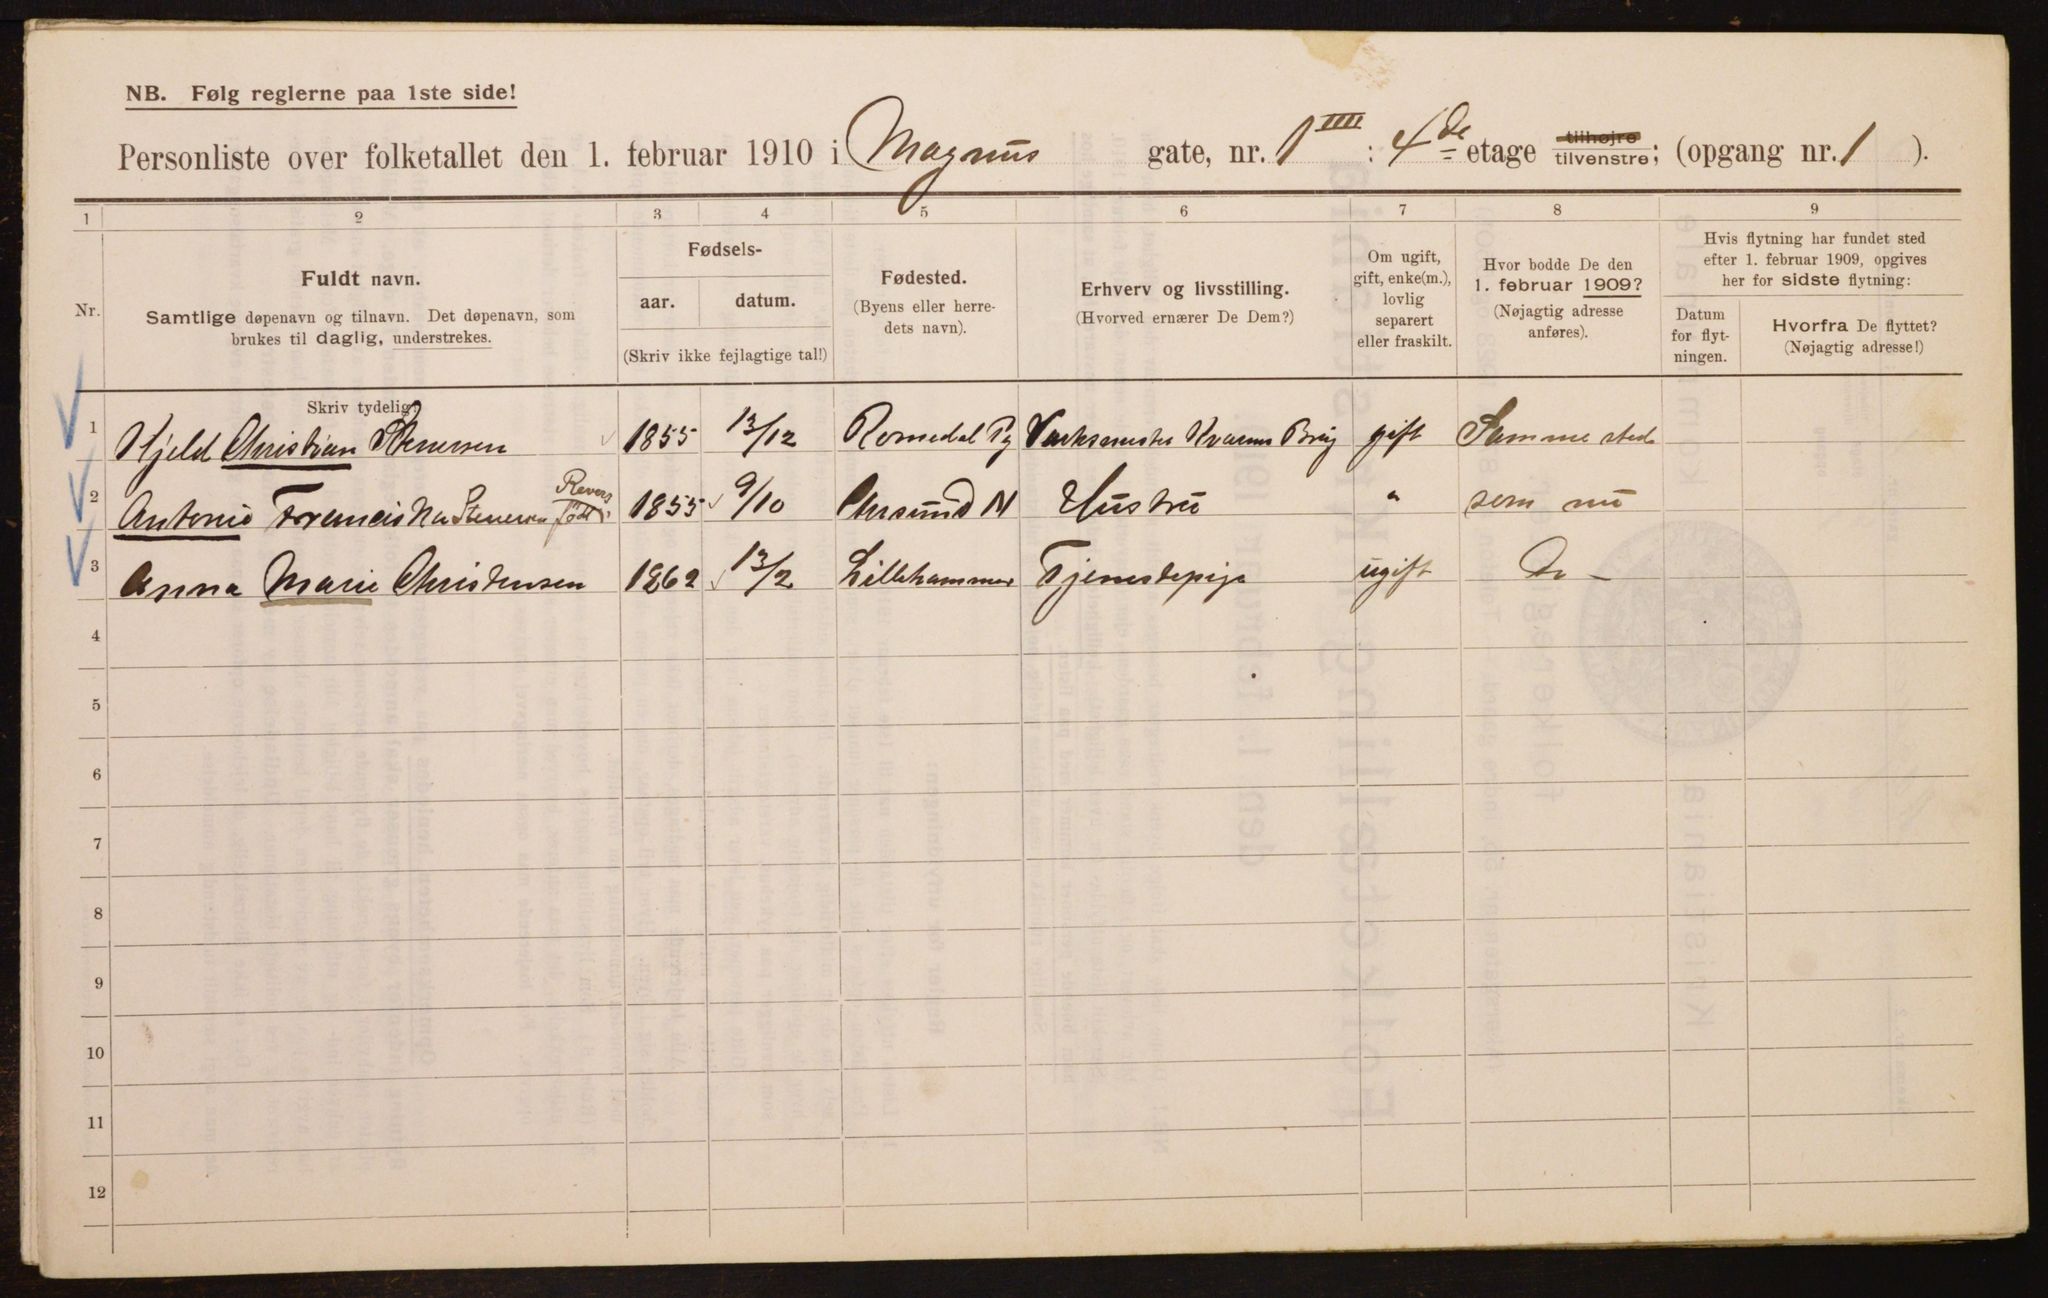 NB. Følg reglerne paa 1ste side!
Personliste over folketallet den 1. februar 1910 i Magnus gate, nr. 1 IIII : 4de etage tilhøjre tilvenstre; (opgang nr. 1 ).
1 2 3 4 5 6 7 8 9
Nr.
Fuldt navn.
Samtlige døpenavn og tilnavn. Det døpenavn, som
brukes til daglig, understrekes.
Fødsels-
aar. datum.
(Skriv ikke fejlagtige tal!)
Fødested.
(Byens eller herre-
dets navn).
Erhverv og livsstilling.
(Hvorved ernærer De Dem?)
Om ugift,
gift, enke(m.),
lovlig
separert
eller fraskilt.
Hvor bodde De den
1. februar 1909?
(Nøjagtig adresse
anføres).
Hvis flytning har fundet sted
efter 1. februar 1909, opgives
her for sidste flytning:
Datum
for flyt-
ningen.
Hvorfra De flyttet?
(Nøjagtig adresse!)
Skriv tydelig!
1 Hjeld Christian Stenersen 1855 13/12 Romedal Pg Kværner Brug gift Samme sted
2 Antonie Franciska Stenersen født 1855 9/10 Chrsund N Hustru " som nu
3 Anna Marie Christensen 1862 13/2 Lillehammer Tjenestepige ugift Do -
4
5
6
7
8
9
10
11
12